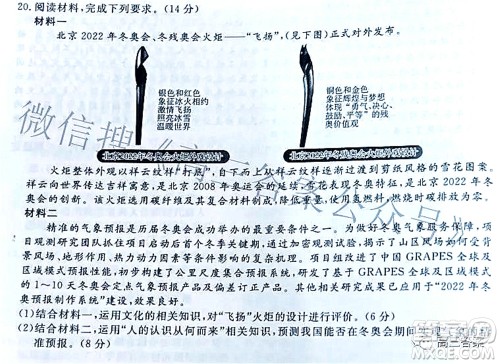 20. 阅读材料,完成下列要求。(14分)
材料一
北京2022年冬奥会、冬残奥会火炬——“飞扬”,(见下图)正式对外发布。
银色和红色
象征冰火相约
激情飞扬
照亮冰雪
温暖世界
铜色和金色
象征辉煌与梦想
体现“勇气、决心、
鼓励、平等”的残
奥价值观
北京2022年冬奥会火炬外观设计
北京2022年冬残奥会火炬外观设计
火炬整体外观以祥云纹样“打底”,自下而上从祥云纹样逐渐过渡到剪纸风格的雪花图案。
祥云向世界传达吉祥寓意,是北京2008年奥运会的延续,雪花表现冬奥特征,是北京2022年冬
奥会的创新。该火炬选用碳纤维及其复合材料制成,降低重量,使用氢燃料,燃烧时碳排放为零。
材料二
精准的气象预报是历届冬奥会成功举办的重要条件之一。为做好冬奥气象服务保障,项
目观测研究团队抓住项目启动后首个冬季关键期,通过加密观测试验,揭示了山区风场如何受背
景风场、地形作用、热力动力因素等条件影响的复杂机理。项目组改进了中国GRAPES全球及
区域模式预报性能,初步构建了公里尺度集合预报系统,研发了基于GRAPES全球及区域模式
的1～10天冬奥会定点气象预报产品及偏差订正产品。其他相关研究成果已应用于“2022年冬
奥预报制作系统”建设,效果良好。
(1)结合材料一,运用文化的相关知识,对“飞扬”火炬的设计进行评价。(6分)
(2)结合材料二,运用“人的认识从何而来”相关知识,预测我国能否在冬奥会期间
准预报。(8分)
微信搜
高三答案